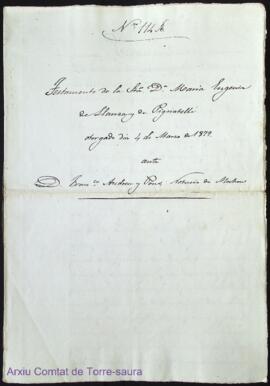 Nº 114
Testamento de la Sra. Dª Maria Eugenia
de Llanza y de Pignatelli
otorgado dia 4 de Marzo de
ante
D. Franco. Andreu y Pons Notario de Mahon
Arxiu Comtat de Torre-saura